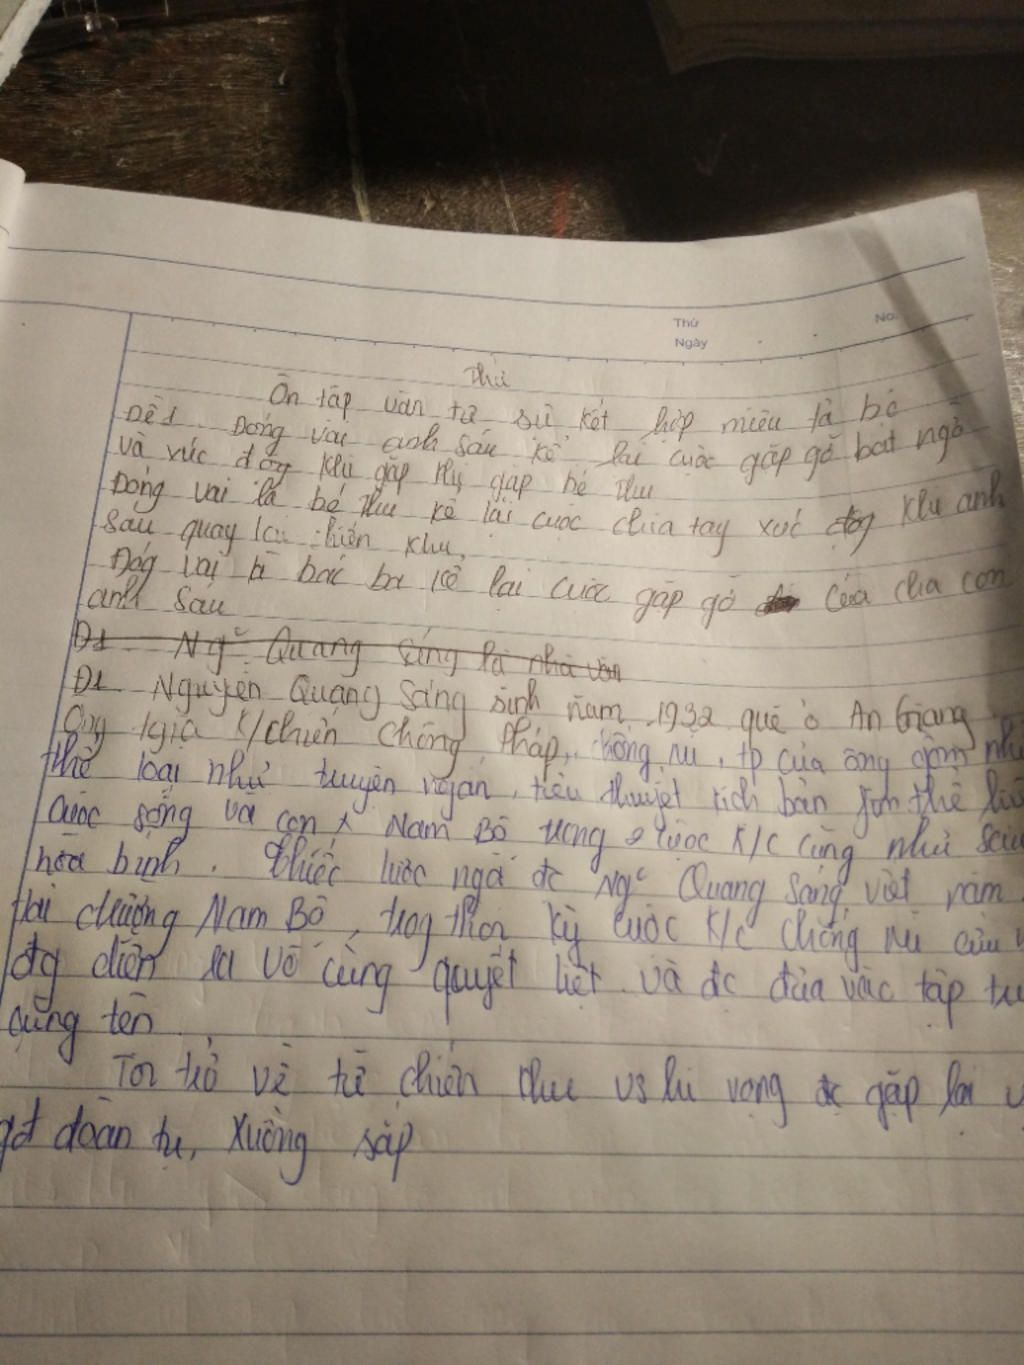 Thứ
Ngày
No.
Thứ
Ôn tập văn tự sự kết hợp miêu tả
Đề 1. Đóng vai anh Sáu kể lại cuộc gặp gỡ bất ngờ
và xúc động khi gặp gặp bé Thu
Đóng vai là bé Thu kể lại cuộc chia tay xúc động khi anh
Sáu quay lại chiến khu,
Đóng vai bác ba kể lại cuộc gặp gỡ của cha con
anh Sáu
Đ1 Ngc Quang Sáng là nhà văn
Đ1 Nguyễn Quang Sáng sinh năm 1932 quê ở An Giang
Ông tgia k/chiến chống Pháp, chống Mĩ, tp của ông gồm
thể loại như truyện ngắn, tiểu thuyết kịch bản
cuộc sống và con x Nam Bộ trong 2 cuộc K/C cũng như sau
hòa bình. Chiếc lược ngà đc Ngc Quang Sáng viết năm
tại chường Nam Bộ, trog thời kỳ cuộc K/C chống Mĩ cứu
đg diễn ra vô cùng quyết liệt và đc đưa vào tập
cùng tên
Tôi trở về từ chiến khu vs hi vọng đc gặp lại
gđ đoàn tụ, Xuồng sáp